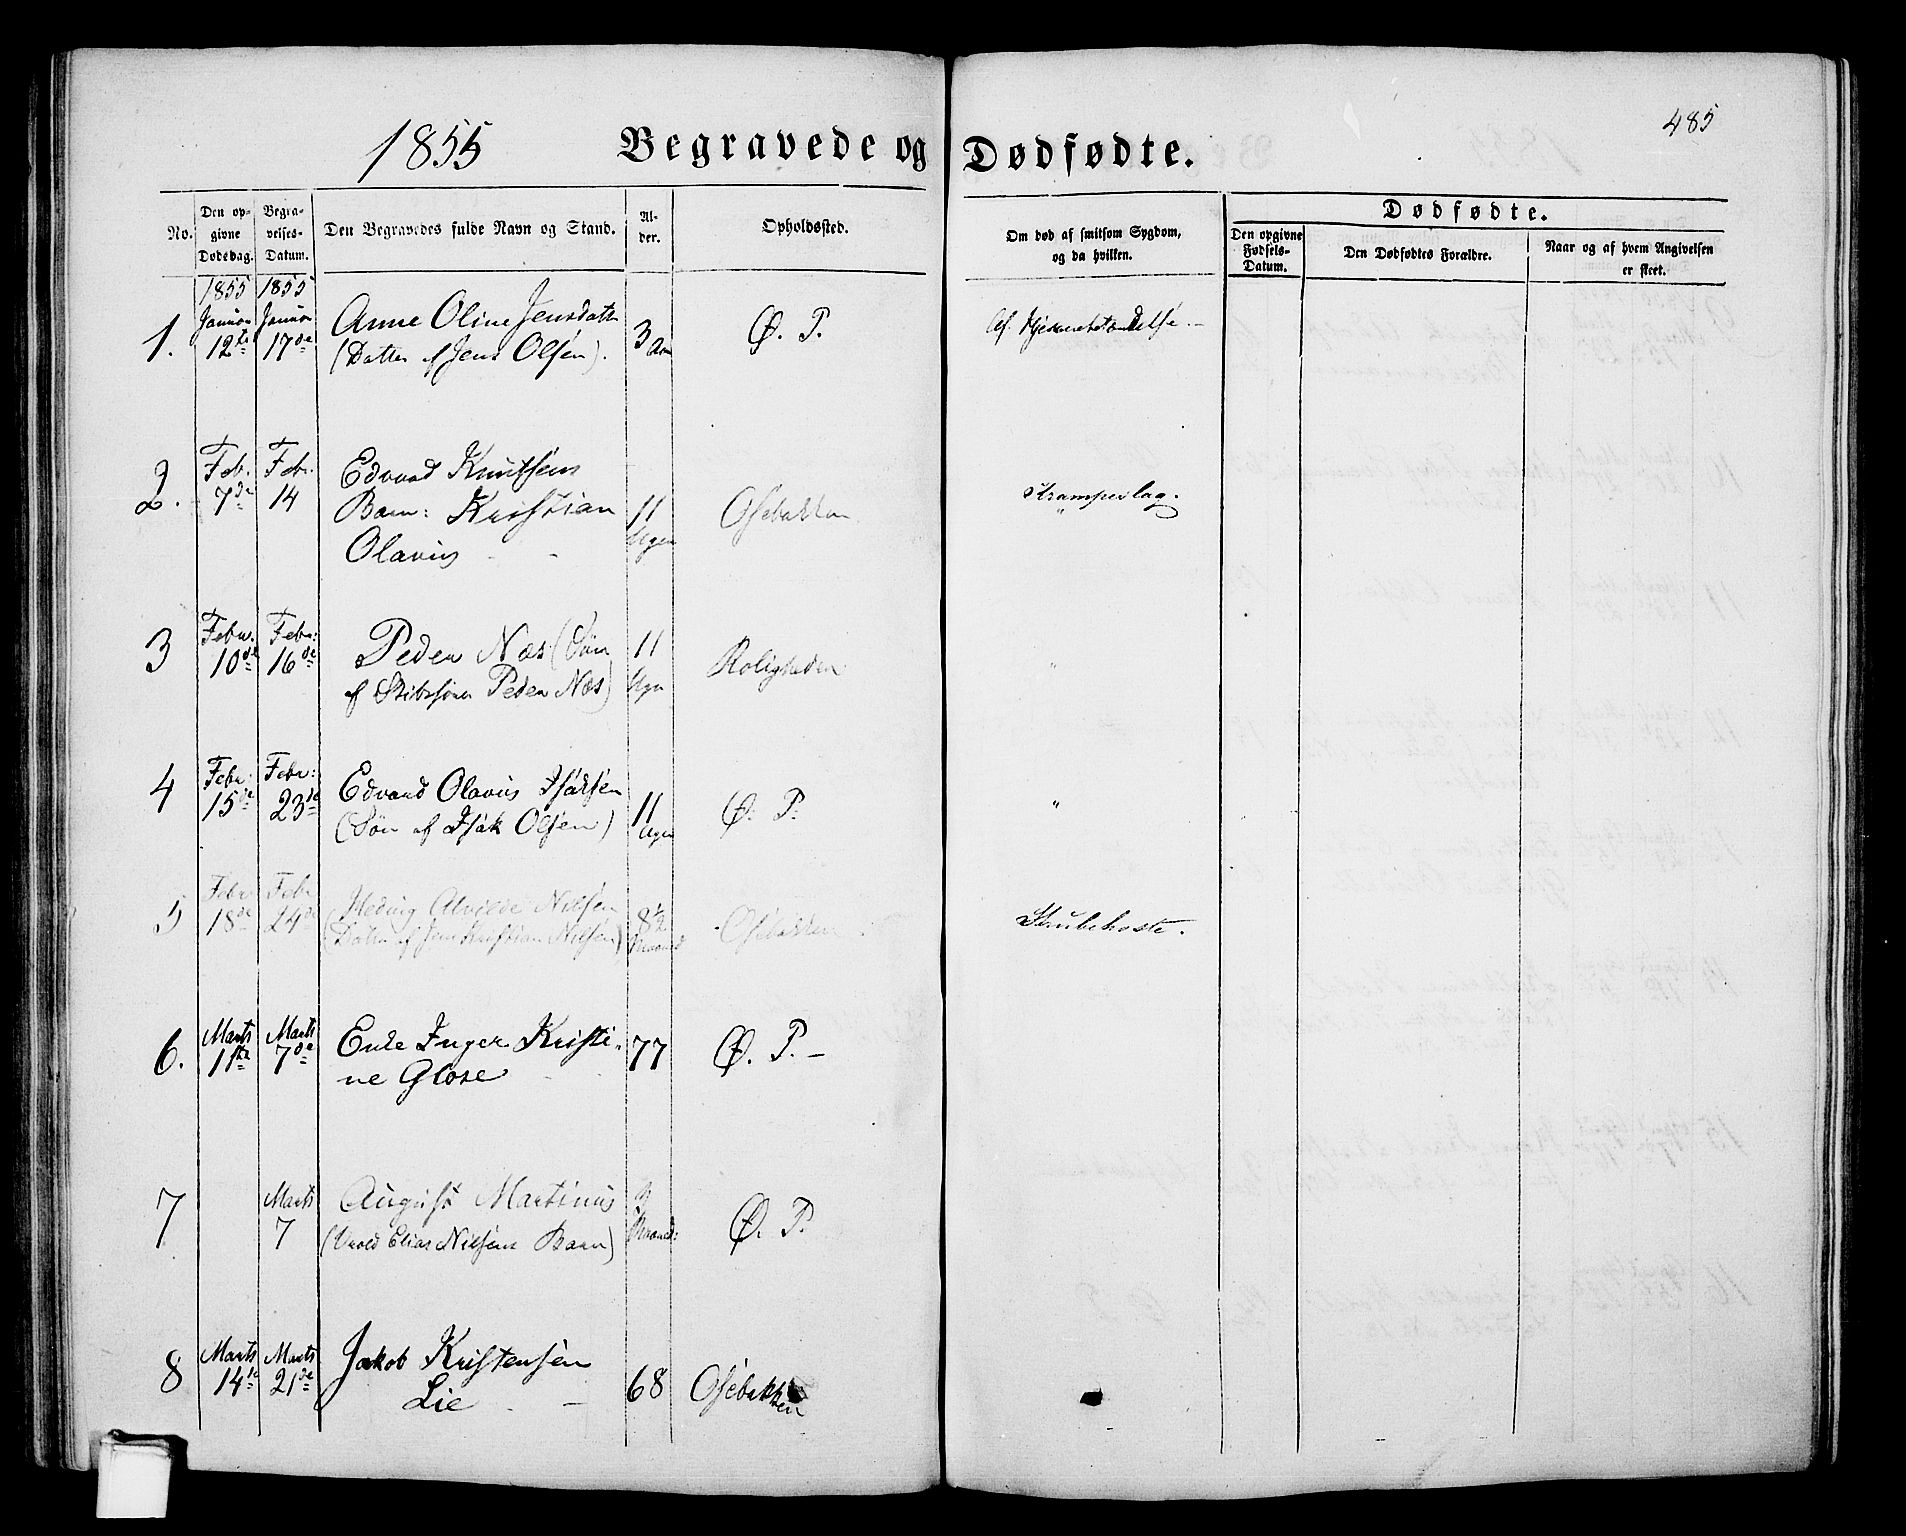 485
1855 Begravede og Dødfødte.
No.
Den opgivne Dødsdag.
Begravelses-Datum.
Den Begravedes fulde Navn og Stand.
Alder.
Opholdssted.
Om død af smitsom Sygdom, og da hvilken.
Dødfødte.
Den opgivne Fødsels-Datum.
Den Dødfødtes Forældre.
Naar og af hvem Angivelsen er skeet.
1855 1855
Januar Januar Anne Oline Jensdatt
1. 12te 17de (Datter af Jens Olsen). 3 Aar Ø. P. Af Hjernebetændelse.
Feb. Feb. Edvard Knutsens
2. 7de 14 Barn: Kristian 11 Osebakken Krampeslag.
Olavus Uger
Febr. Febr: Peder Næs (Søn 11
3 10de 16de af Skibsfører Peder Næs) Uger Roligheden "
Febr: Febr: Edvard Olavus Isaksen 11
4 15de 23de (Søn af Isak Olsen) Uger Ø. P. "
Febr Febr Hedvig Alvilde Nilsen 8½
5 18de 24de (Datter af Jens Kristian Nilsen) Maaned Osebakken Strubehoste.
Marts Marts Enke Inger Kristi-
6. 1ste 7de ne Glose 77 Ø. P. –
Marts August Martinus
7 7 (Elias Nilsens Barn) Maaned: Ø. P.
Marts Marts Jakob Kristensen
8 14de 21de Lie 68 Osebakken